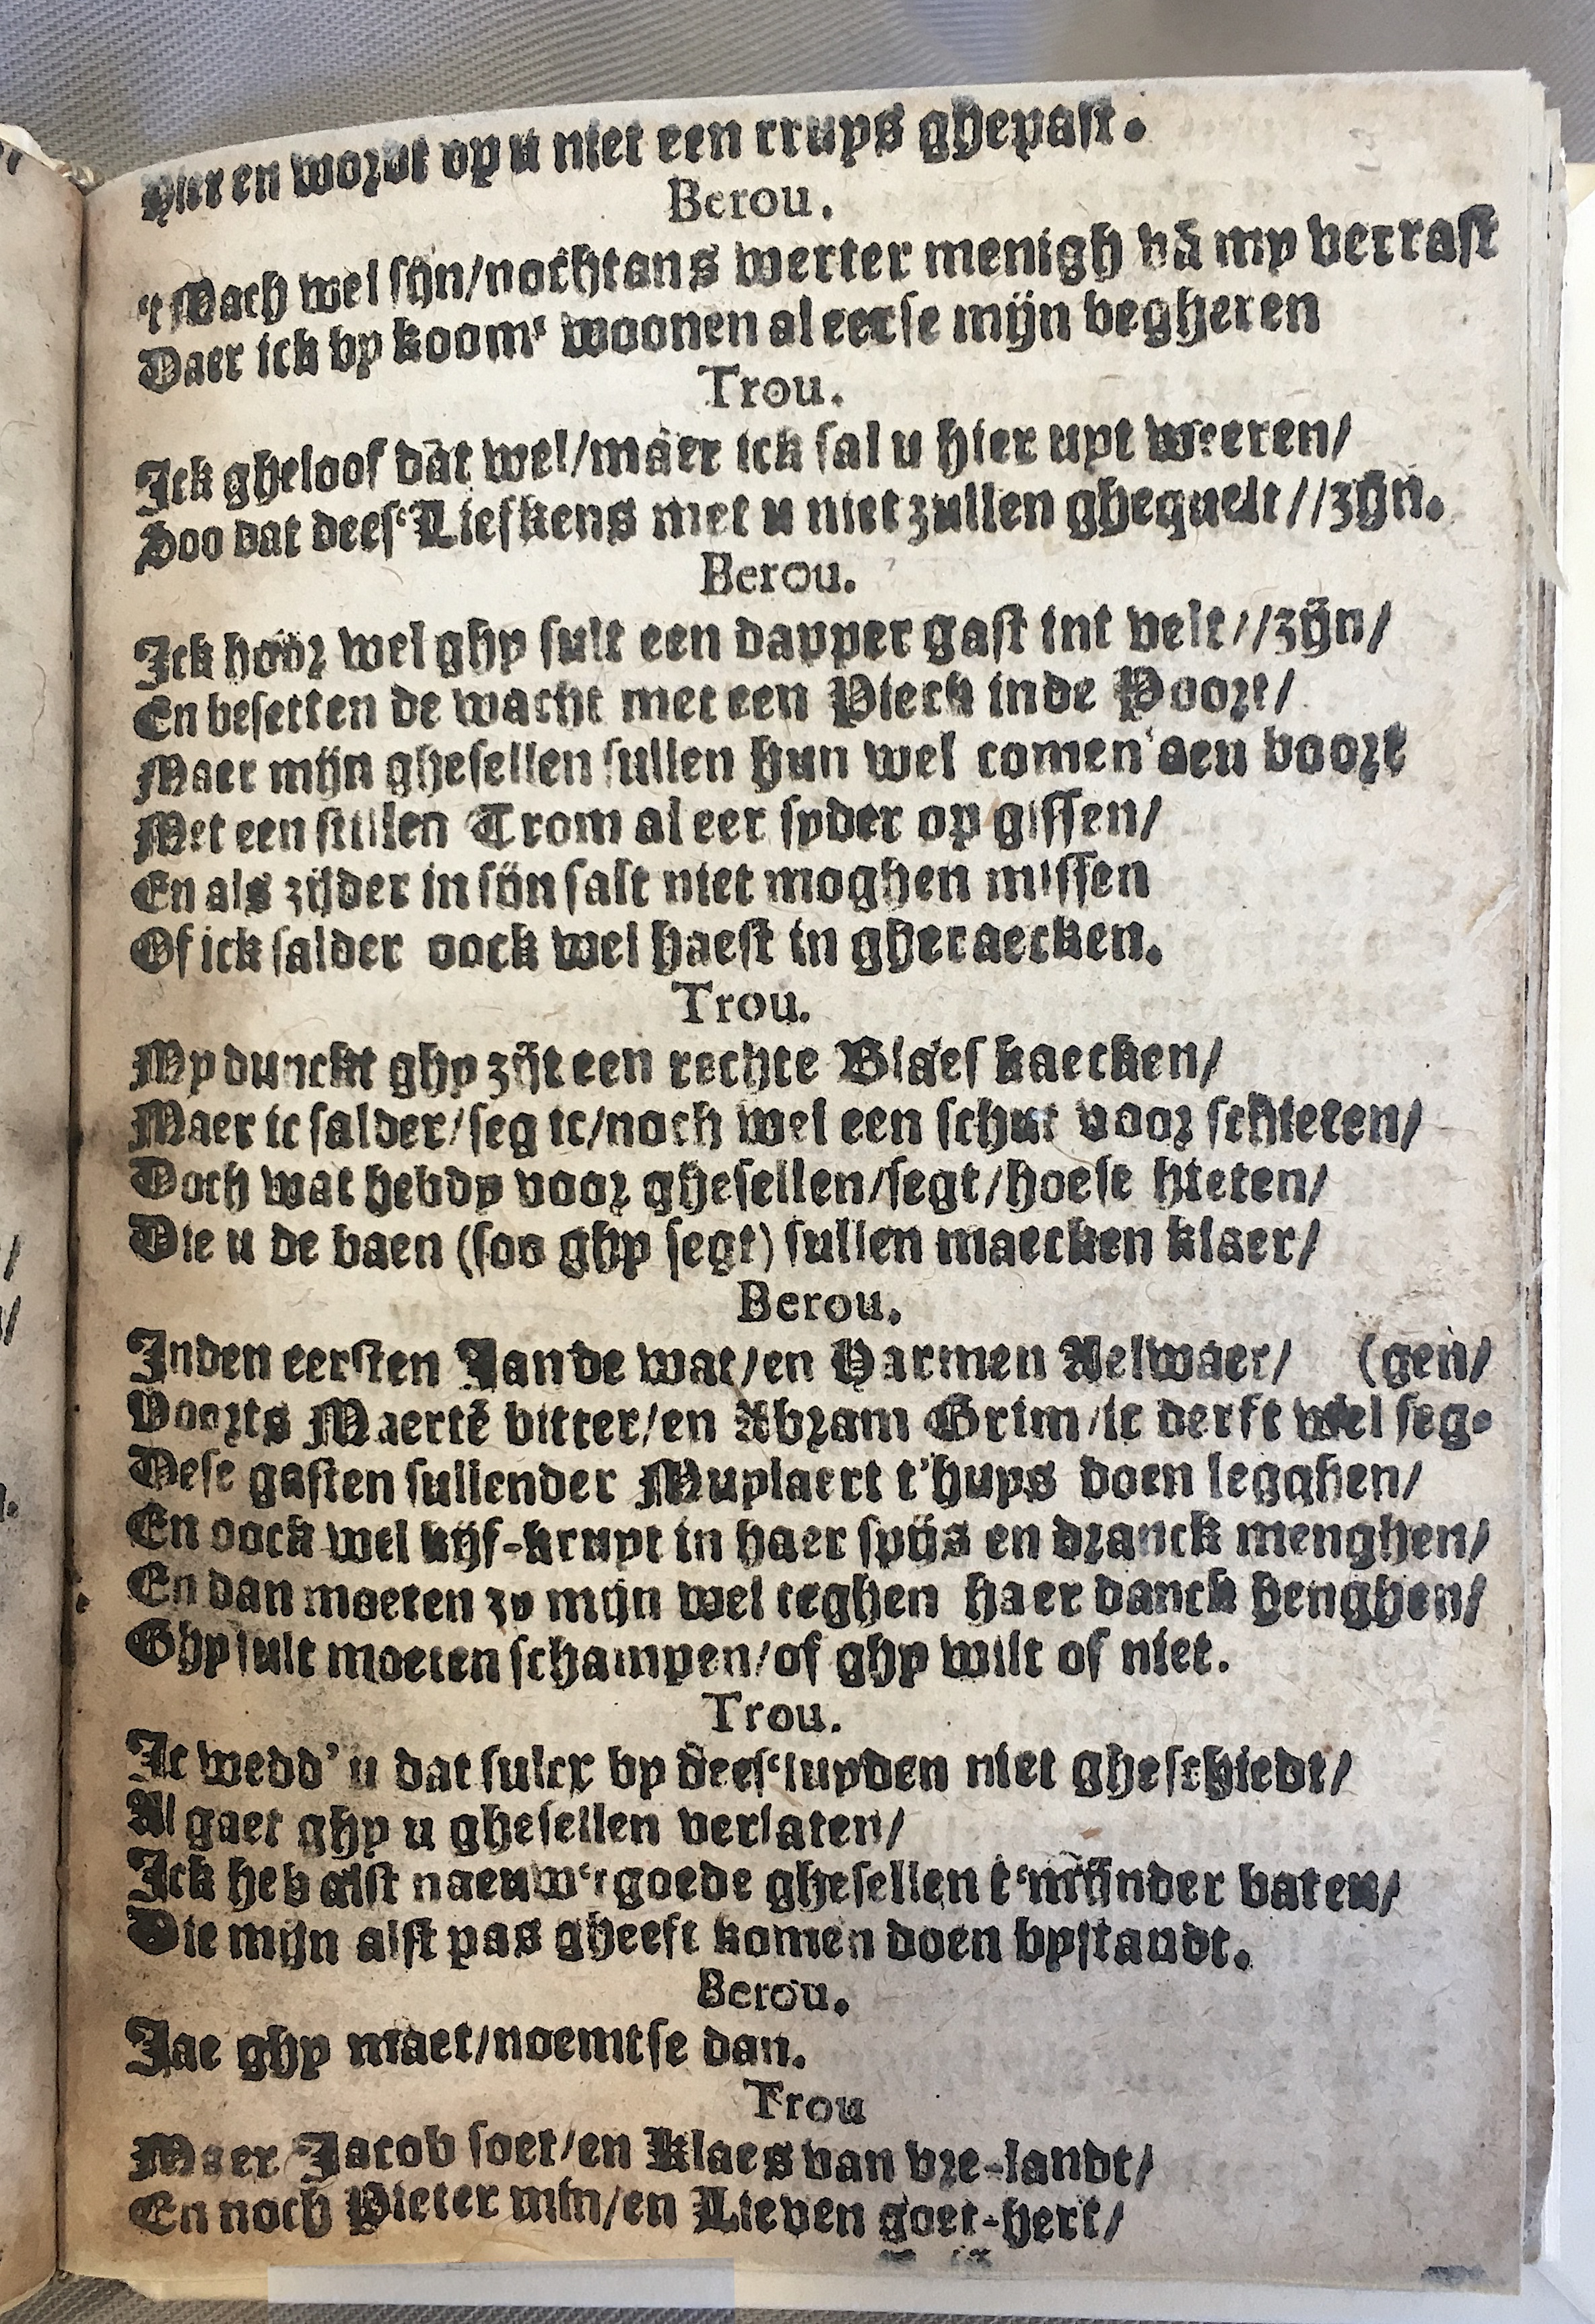 Hier en wordt op u niet een cruys ghepast.
Berou.
't Mach wel sijn/nochtans werter menigh vā my verrast
Daer ick by koom' woonen al eerse mijn begheren
Trou.
Ick gheloof dat wel/maer ick sal u hier uyt weeren/
Soo dat dees' Liefkens met u niet zullen ghequelt//zijn.
Berou.
Ick hoor wel ghy sult een dapper gast int velt//zijn/
En besetten de wacht met een Pieck inde Poort/
Maer mijn ghesellen sullen hun wel comen aen boort
Met een stillen Trom al eer syder op gissen/
En als zijder in sijn salt niet moghen missen
Of ick salder oock wel haest in gheraecken.
Trou.
My dunckt ghy zijt een rechte Blaes kaecken/
Maer ic salder/seg ic/noch wel een schut voor schieten/
Doch wat hebdy voor ghesellen/segt/hoese hieten/
Die u de baen (soo ghy segt) sullen maecken klaer/
Berou.
Inden eersten Jan de wat/en Harmen Aelwaer/ (gen/
Voorts Maertē bitter/en Abram Grim/ic derft wel seg-
Dese gasten sullender Muylaert t'huys doen legghen/
En oock wel kijf-kruyt in haer spijs en dranck menghen/
En dan moeten zy mijn wel teghen haer danck henghen/
Ghy sult moeten schampen/of ghy wilt of niet.
Trou.
Ic wedd' u dat sulcx by dees' luyden niet gheschiedt/
Al gaet ghy u ghesellen verlaten/
Ick heb alst naeuw't goede ghesellen t'mijnder baten/
Die mijn alst pas gheeft komen doen bystandt.
Berou.
Jae ghy maet/noemtse dan.
Trou
Maer Jacob soet/en Klaes van vre-landt/
En noch Pieter min/en Lieven goet-hert/